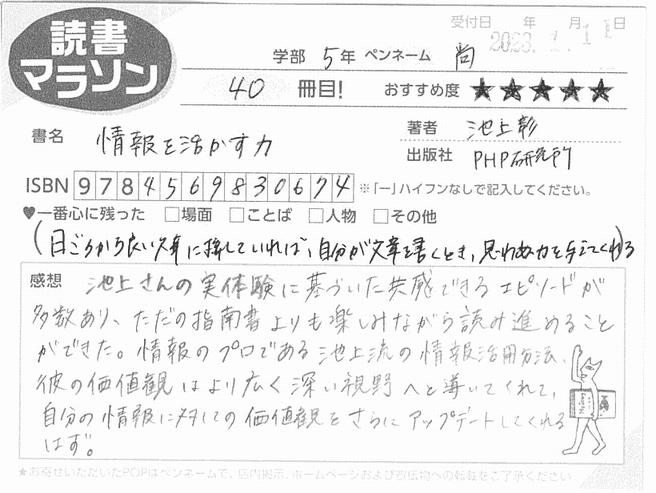 受付日 年 月 日
2023. 1. 11
読書
マラソン
学部 5年 ペンネーム 尚
40 冊目! おすすめ度 ★★★★★
書名 情報を活かす力
著者 池上彰
出版社 PHP研究所
ISBN 9784569830674 ※「ー」ハイフンなしで記入してください。
♥一番心に残った □場面 □ことば □人物 □その他
(日ごろから良い文章に接していれば、自分が文章を書くとき、思わぬ力を与えてくれる)
感想 池上さんの実体験に基づいた共感できるエピソードが
多数あり、ただの指南書よりも楽しみながら読み進めること
ができた。情報のプロである池上流の情報活用方法、
彼の価値観はより広く深い視野へと導いてくれて、
自分の情報に対しての価値観をさらにアップデートしてくれる
はず。
★お寄せいただいたPOPはペンネームで、店内掲示、ホームページおよび宣伝物への転載をご了承ください